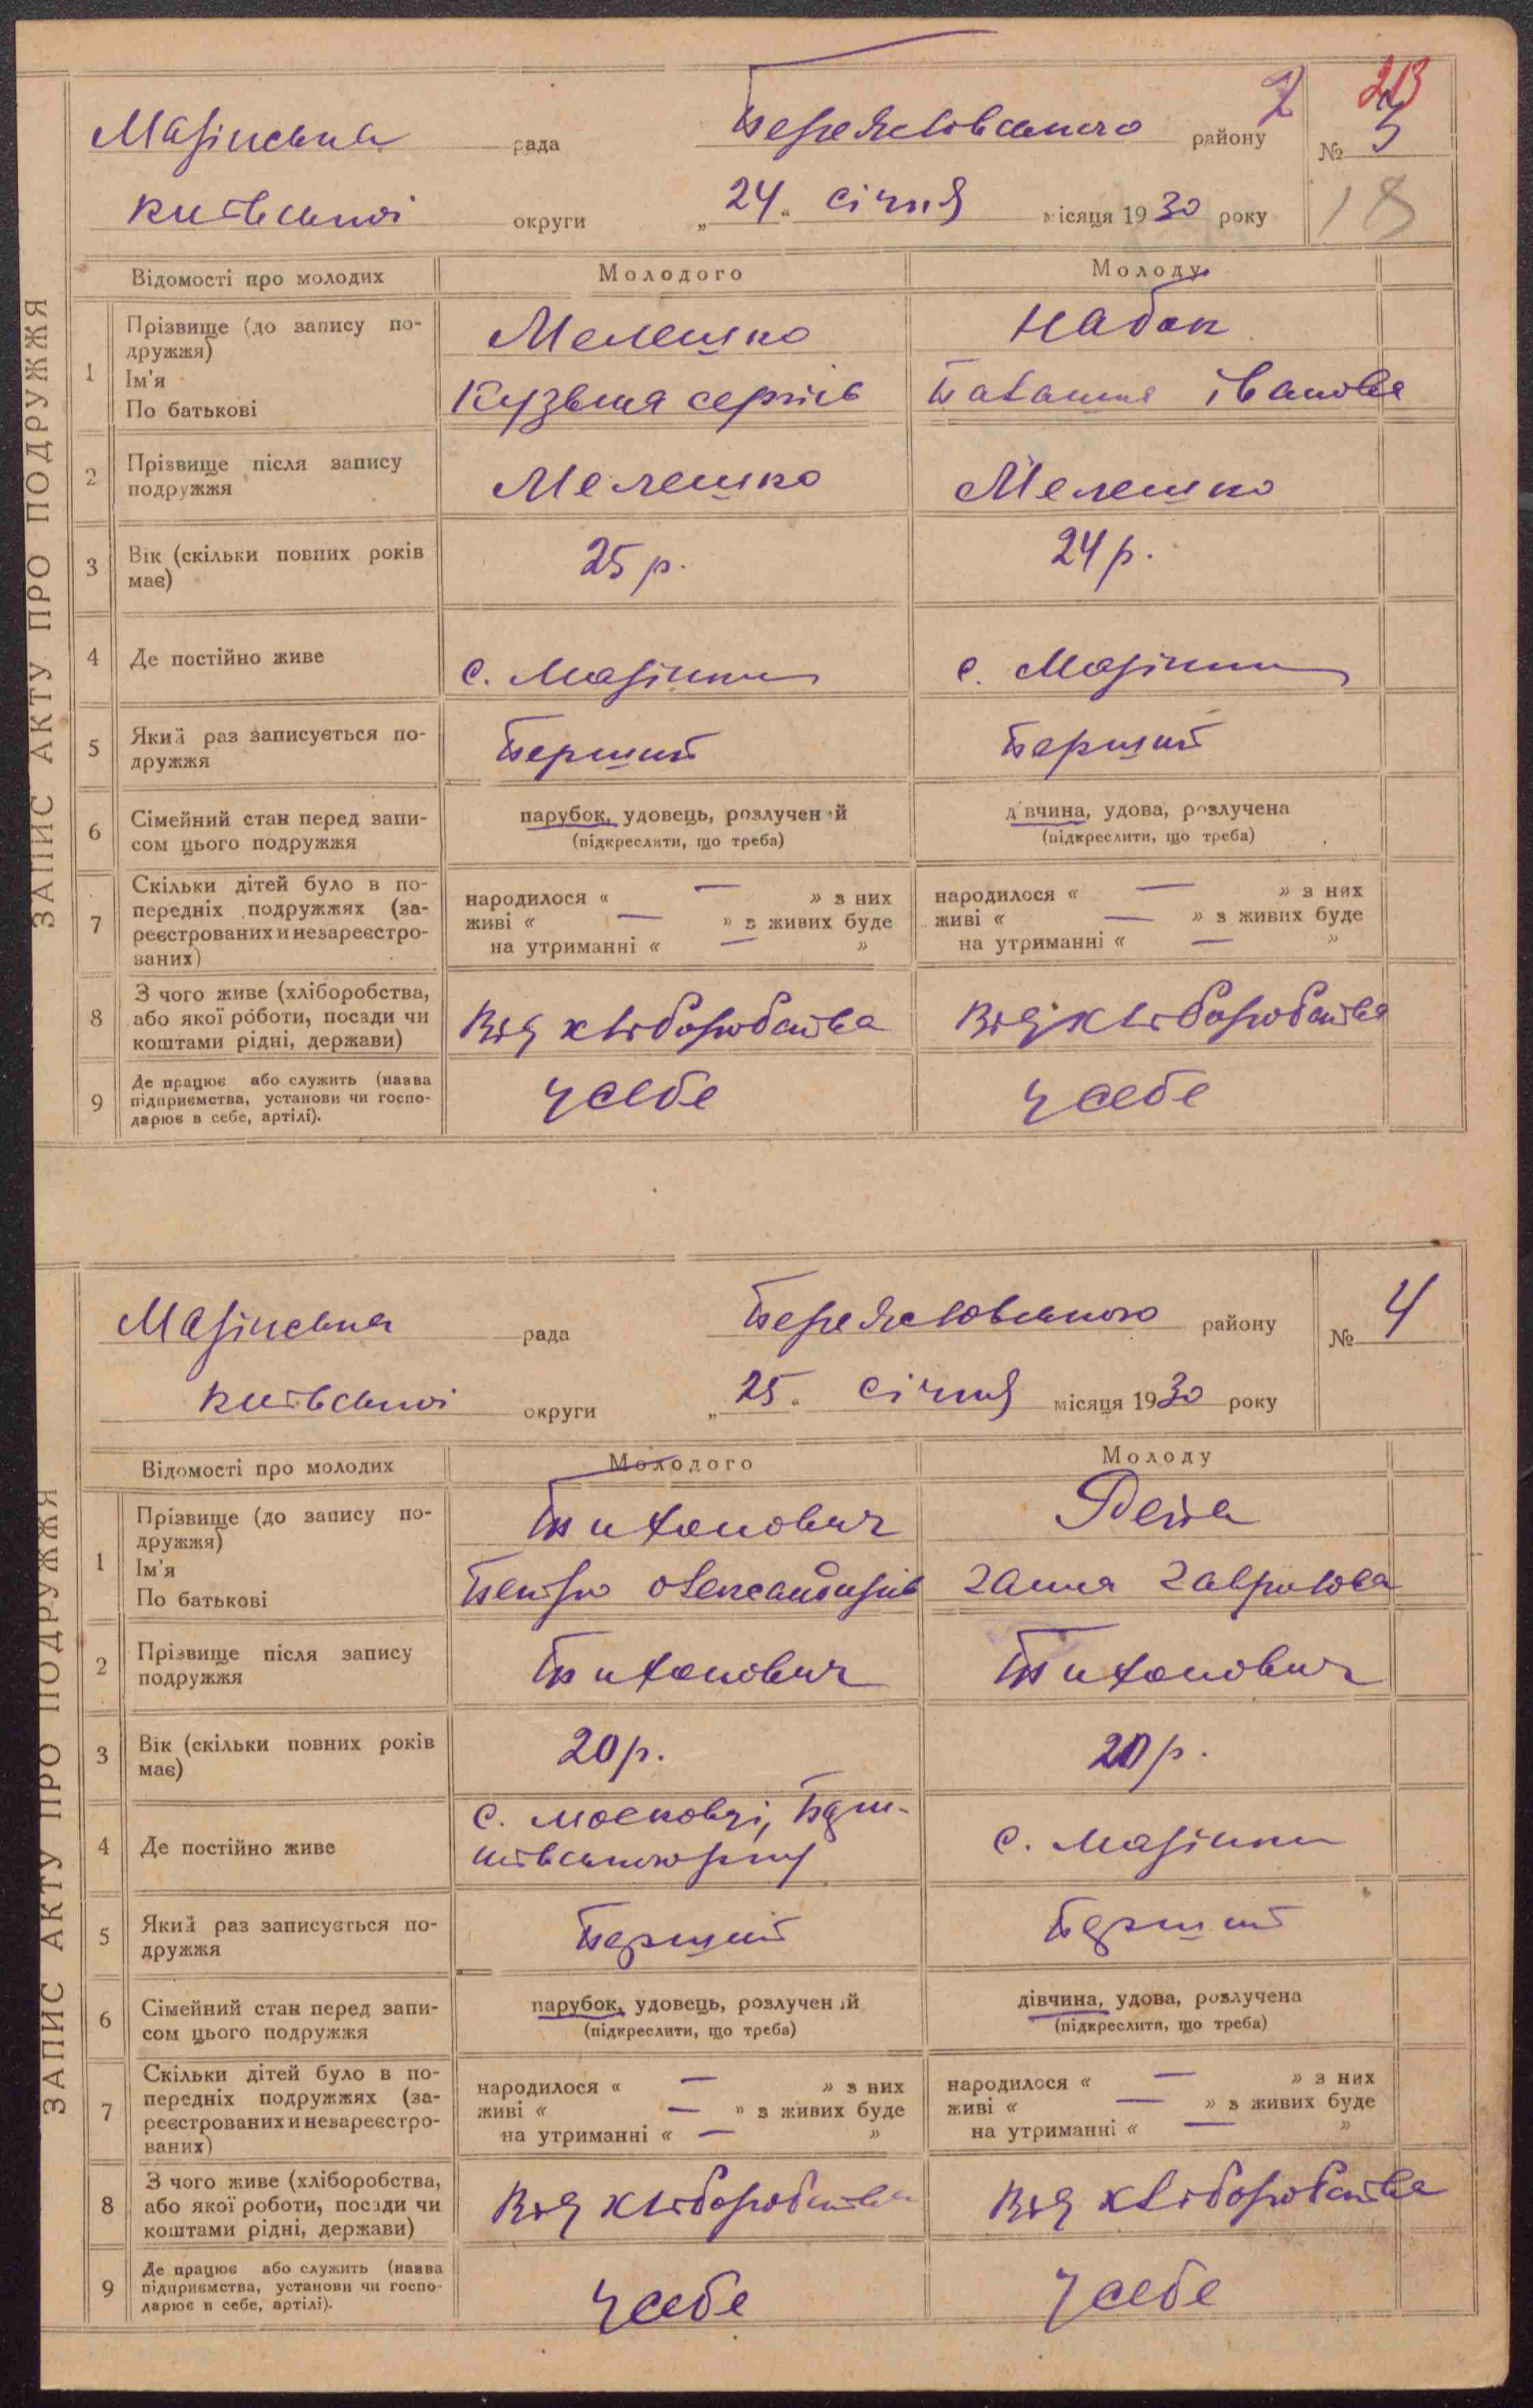 ЗАПИС АКТУ ПРО ПОДРУЖЖЯ
2
213
Мазінська рада Переяславського району № 3
київської округи „24“ січня місяця 1930 року
18
Відомості про молодих Молодого Молоду
1 Прізвище (до запису по-
дружжя)
Ім'я
По батькові
Мелешко Набок
Кузьма сергіїв Палажка іванова
2 Прізвище після запису
подружжя
Мелешко Мелешко
3 Вік (скільки повних років
має)
25 р. 24 р.
4 Де постійно живе с. Мазінки с. Мазінки
5 Який раз записується по-
дружжя
Перший Перший
6 Сімейний стан перед запи-
сом цього подружжя
парубок, удовець, розлучений дівчина, удова, розлучена
(підкреслити, що треба) (підкреслити, що треба)
7 Скільки дітей було в по-
передніх подружжях (за-
реєстрованих и незареєстро-
ваних)
народилося « — » з них народилося « — » з них
живі « — » з живих буде живі « — » з живих буде
на утриманні « — » на утриманні « — »
8 З чого живе (хліборобства,
або якої роботи, посади чи
коштами рідні, держави)
Від хліборобства Від хліборобства
9 Де працює або служить (назва
підприємства, установи чи госпо-
дарює в себе, артілі).
у себе у себе
ЗАПИС АКТУ ПРО ПОДРУЖЖЯ
Мазінська рада Переяславського району № 4
київської округи „25“ січня місяця 1930 року
Відомості про молодих Молодого Молоду
1 Прізвище (до запису по-
дружжя)
Ім'я
По батькові
Тихонович Рева
Петро олександрів ганна гаврилова
2 Прізвище після запису
подружжя
Тихонович Тихонович
3 Вік (скільки повних років
має)
20 р. 20 р.
4 Де постійно живе
с. московці,
с. Мазінки
5 Який раз записується по-
дружжя
Перший Перший
6 Сімейний стан перед запи-
сом цього подружжя
парубок, удовець, розлучений дівчина, удова, розлучена
(підкреслити, що треба) (підкреслити, що треба)
7 Скільки дітей було в по-
передніх подружжях (за-
реєстрованих и незареєстро-
ваних)
народилося « — » з них народилося « — » з них
живі « — » з живих буде живі « — » з живих буде
на утриманні « — » на утриманні « — »
8 З чого живе (хліборобства,
або якої роботи, посади чи
коштами рідні, держави)
Від хліборобства Від хліборобства
9 Де працює або служить (назва
підприємства, установи чи госпо-
дарює в себе, артілі).
у себе у себе